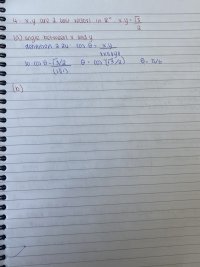 4. x,y are 2 unit vectors in R^n x.y = √3/2
(a) angle between x and y
definition 2.20 cos θ = x.y / ||x|| ||y||
so cos θ = √3/2 / (1)(1) θ = cos^-1(√3/2) θ = π/6
(b)